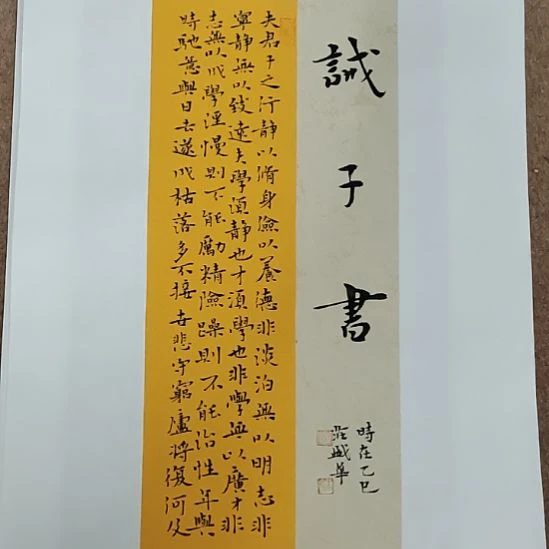 誡子書
時在乙巳
莊盛華
夫君子之行靜以脩身儉以養德非淡泊無以明志非
寧靜無以致遠夫學須靜也才須學也非學無以廣才非
志無以成學淫慢則不能勵精險躁則不能治性年與
時馳意與日去遂成枯落多不接世悲守窮廬將復何及